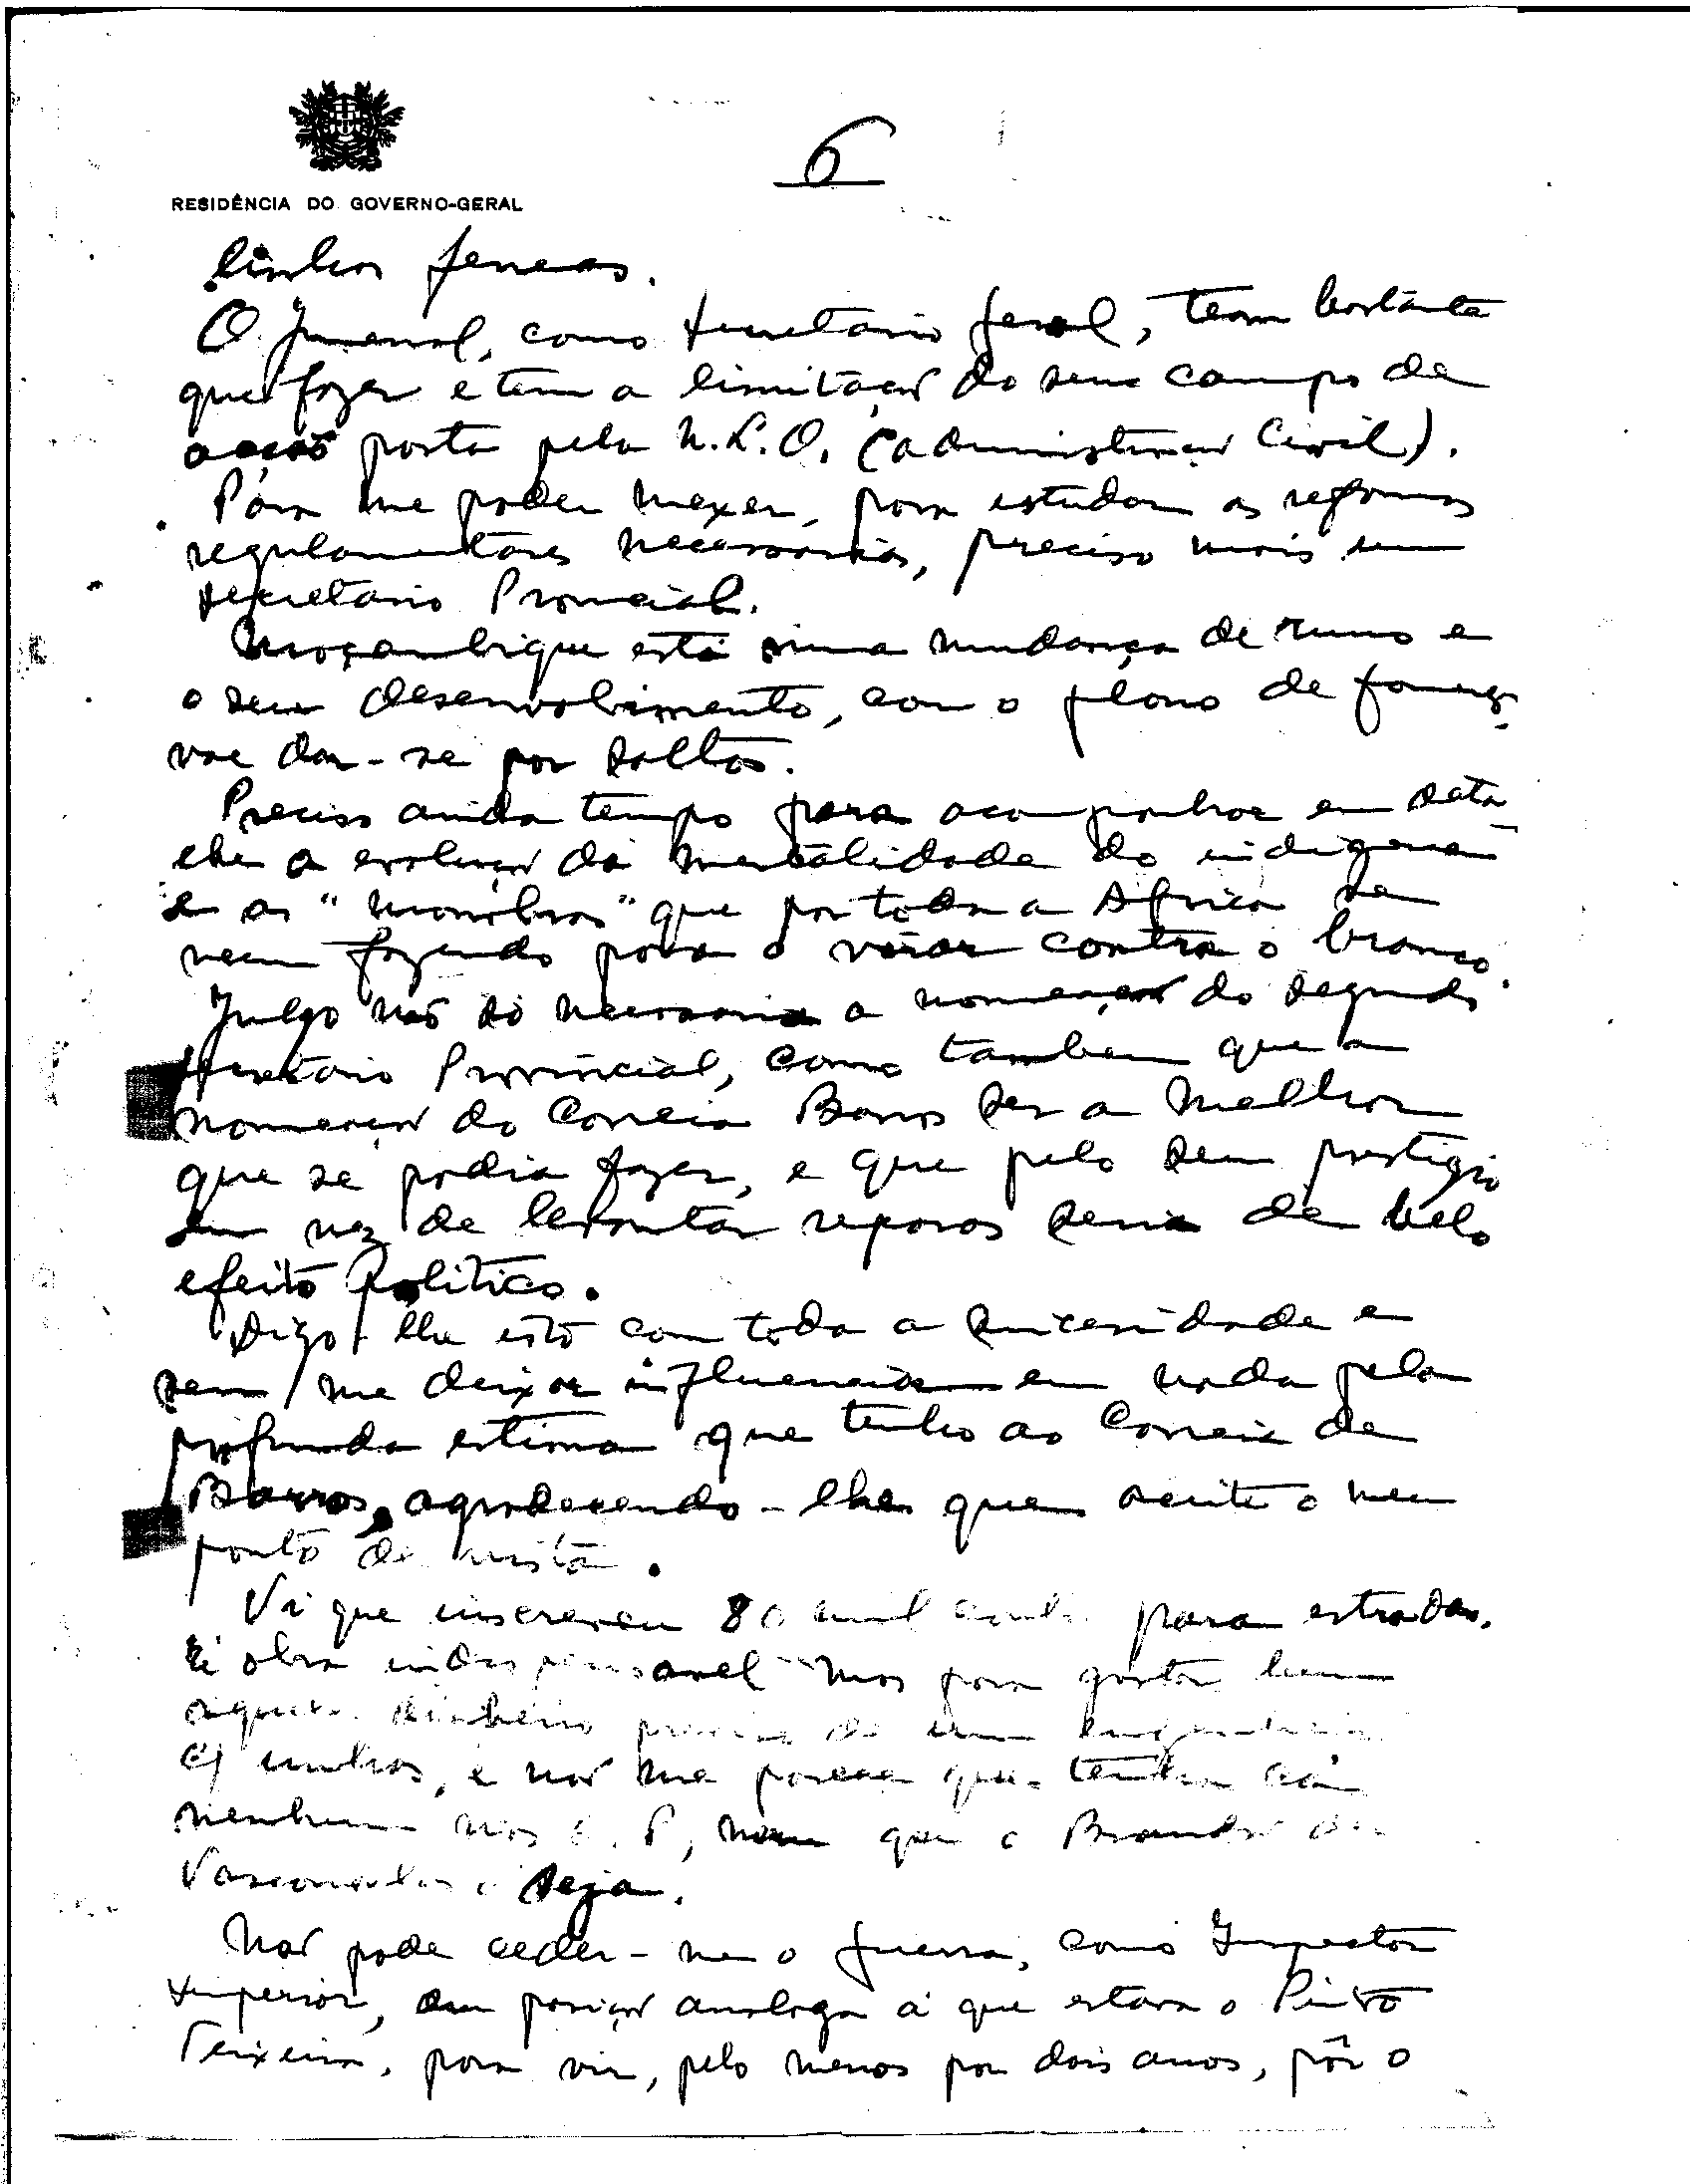 6
RESIDÊNCIA DO GOVERNO-GERAL
linhas ferreas.
O Juvenal, como secretario geral, tem bastante
que fazer e tem a limitação do seu campo de
acção posta pela N.L.O. (administração Civil).
Para me poder mexer, para estudar as reformas
regulamentares necessarias, preciso mais um
secretario Provincial.
Moçambique está numa mudança de rumo e
o seu desenvolvimento, com o plano de fomento
vae dar-se por saltos.
Preciso ainda tempo para acompanhar em deta
lhe a evolução da mentalidade do indigena
e as "manobras" que por toda a Africa se
vem fazendo para o virar contra o branco.
Julgo não só necessaria a nomeação do segundo
secretario Provincial, como tambem que a
nomeação do Correia Barros ser a melhor
que se podia fazer, e que pelo seu prestigio
em vez de levantar reparos seria de belo
efeito Politico.
Digo-lhe isto com toda a sinceridade e
sem me deixar influenciar em nada pela
profunda estima que tenho ao Correia de
Barros, agradecendo-lhe que aceite o meu
ponto de vista.
Vi que inscreveu 80 mil contos para estradas.
É obra indispensavel mas para gastar bem
aquele dinheiro preciso de um engenheiro
c/ unhas, e não me parece que tenha cá
nenhum nas O.P, nem que o Brandão de
Vasconcelos o seja.
Não pode ceder-me o Guerra, como Inspector
Superior, em posição analoga á que estava o Pinto
Teixeira, para vir, pelo menos por dois anos, pôr o